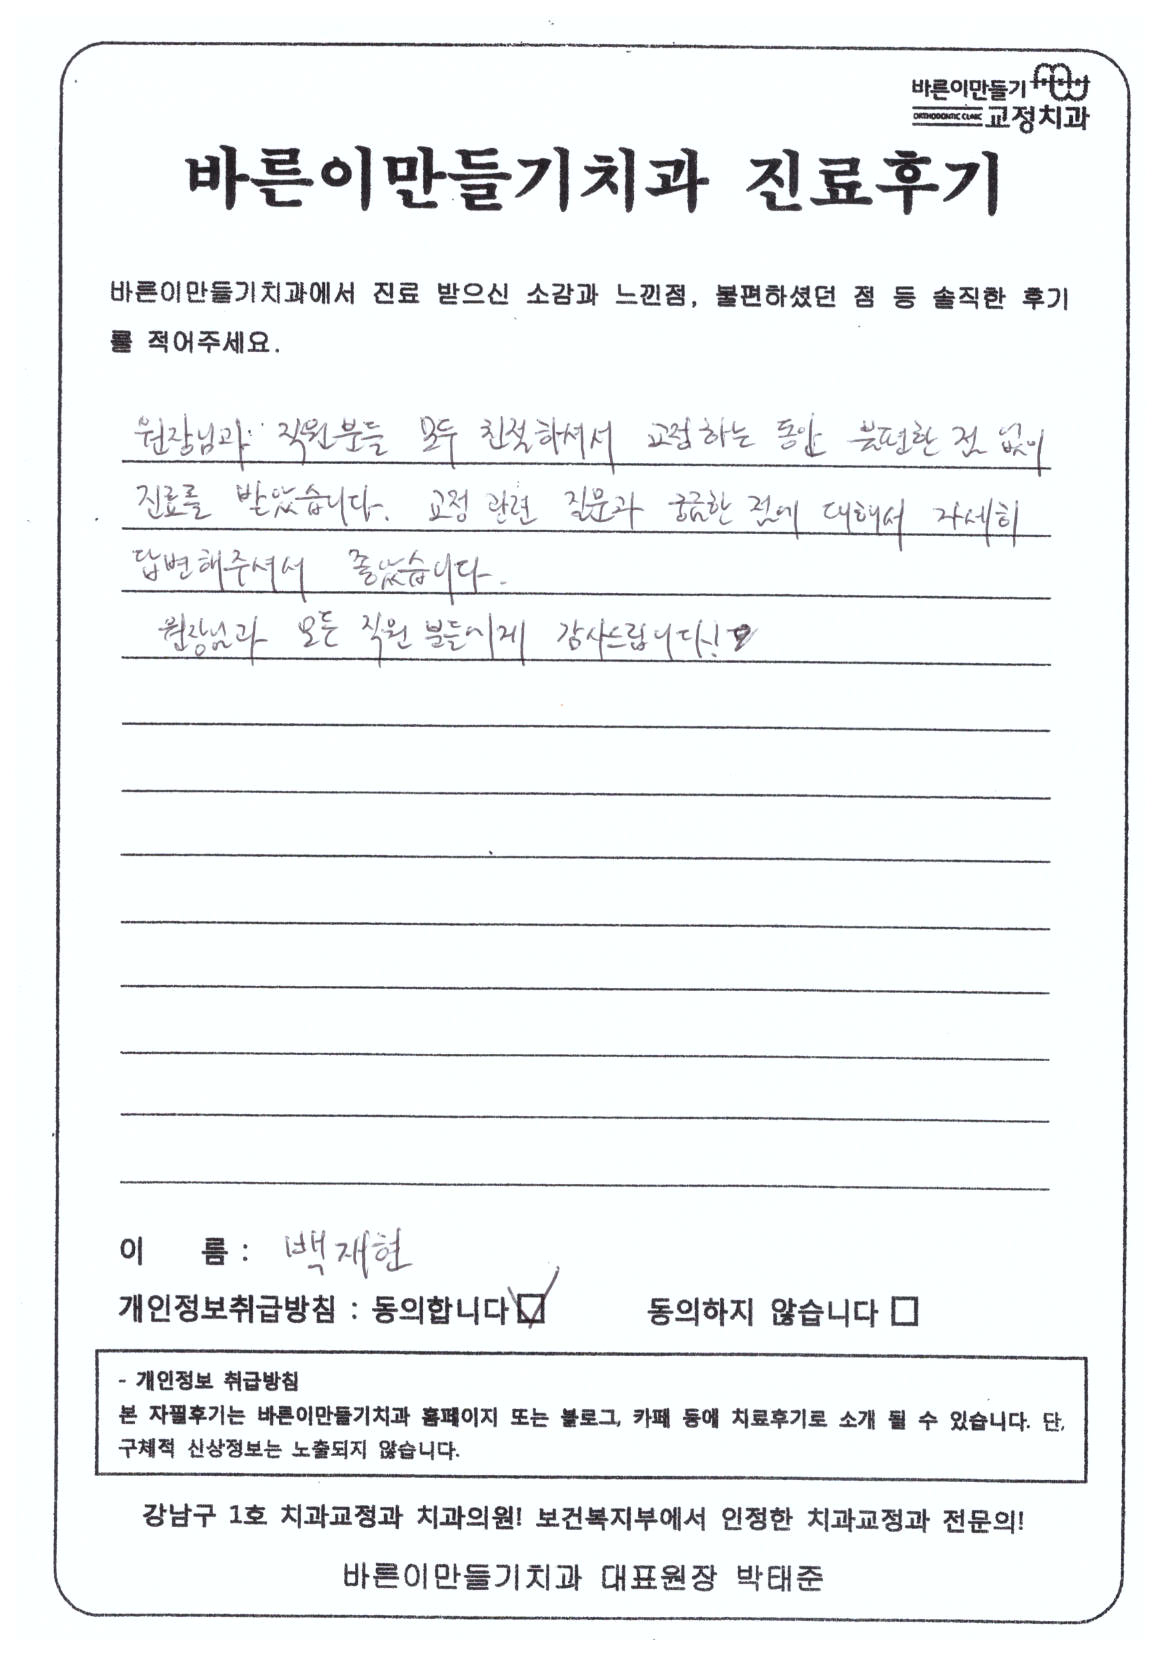 바른이만들기
ORTHODONTIC CLINIC 교정치과
바른이만들기치과 진료후기
바른이만들기치과에서 진료 받으신 소감과 느낀점, 불편하셨던 점 등 솔직한 후기
를 적어주세요.
원장님과 직원분들 모두 친절하셔서 교정하는 동안 불편한 점 없이
진료를 받았습니다. 교정 관련 질문과 궁금한 점에 대해서 자세히
답변해주셔서 좋았습니다.
원장님과 모든 직원 분들에게 감사드립니다!♡
이 름 : 백재현
개인정보취급방침 : 동의합니다☑ 동의하지 않습니다□
- 개인정보 취급방침
본 자필후기는 바른이만들기치과 홈페이지 또는 블로그, 카페 등에 치료후기로 소개 될 수 있습니다. 단,
구체적 신상정보는 노출되지 않습니다.
강남구 1호 치과교정과 치과의원! 보건복지부에서 인정한 치과교정과 전문의!
바른이만들기치과 대표원장 박태준